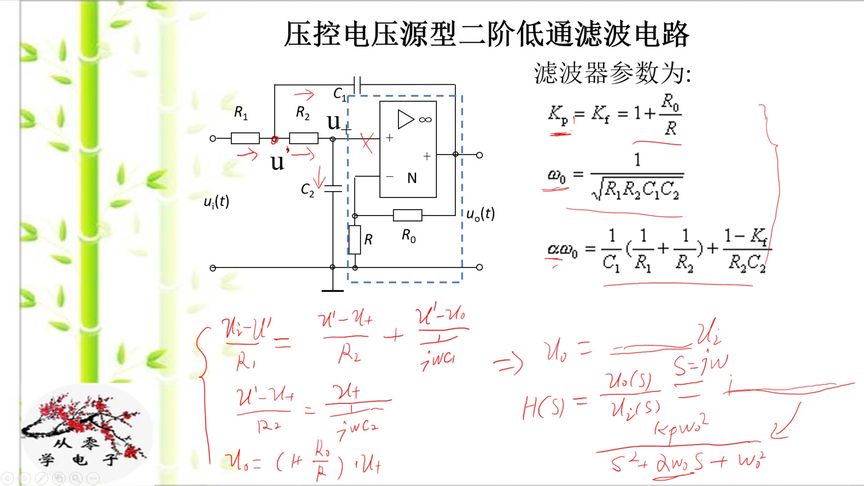 压控电压源型二阶低通滤波电路
滤波器参数为:
K_p = K_f = 1 + R_0/R
ω_0 = 1/√(R_1R_2C_1C_2)
αω_0 = 1/C_1 (1/R_1 + 1/R_2) + (1 - K_f)/(R_2C_2)
C_1
R_1
R_2
u_+
∞
+
+
u'
−
N
C_2
u_i(t)
u_o(t)
R
R_0
(u_i - u')/R_1 = (u' - u_+)/R_2 + (u' - u_o)/(1/(jωC_1))
(u' - u_+)/R_2 = u_+/(1/(jωC_2))
u_o = (1 + R_0/R) · u_+
⇒ u_o = ____ u_i
S = jω
H(S) = u_o(S)/u_i(S) =
K_pω_0²/(S² + αω_0S + ω_0²)
从零
学电子